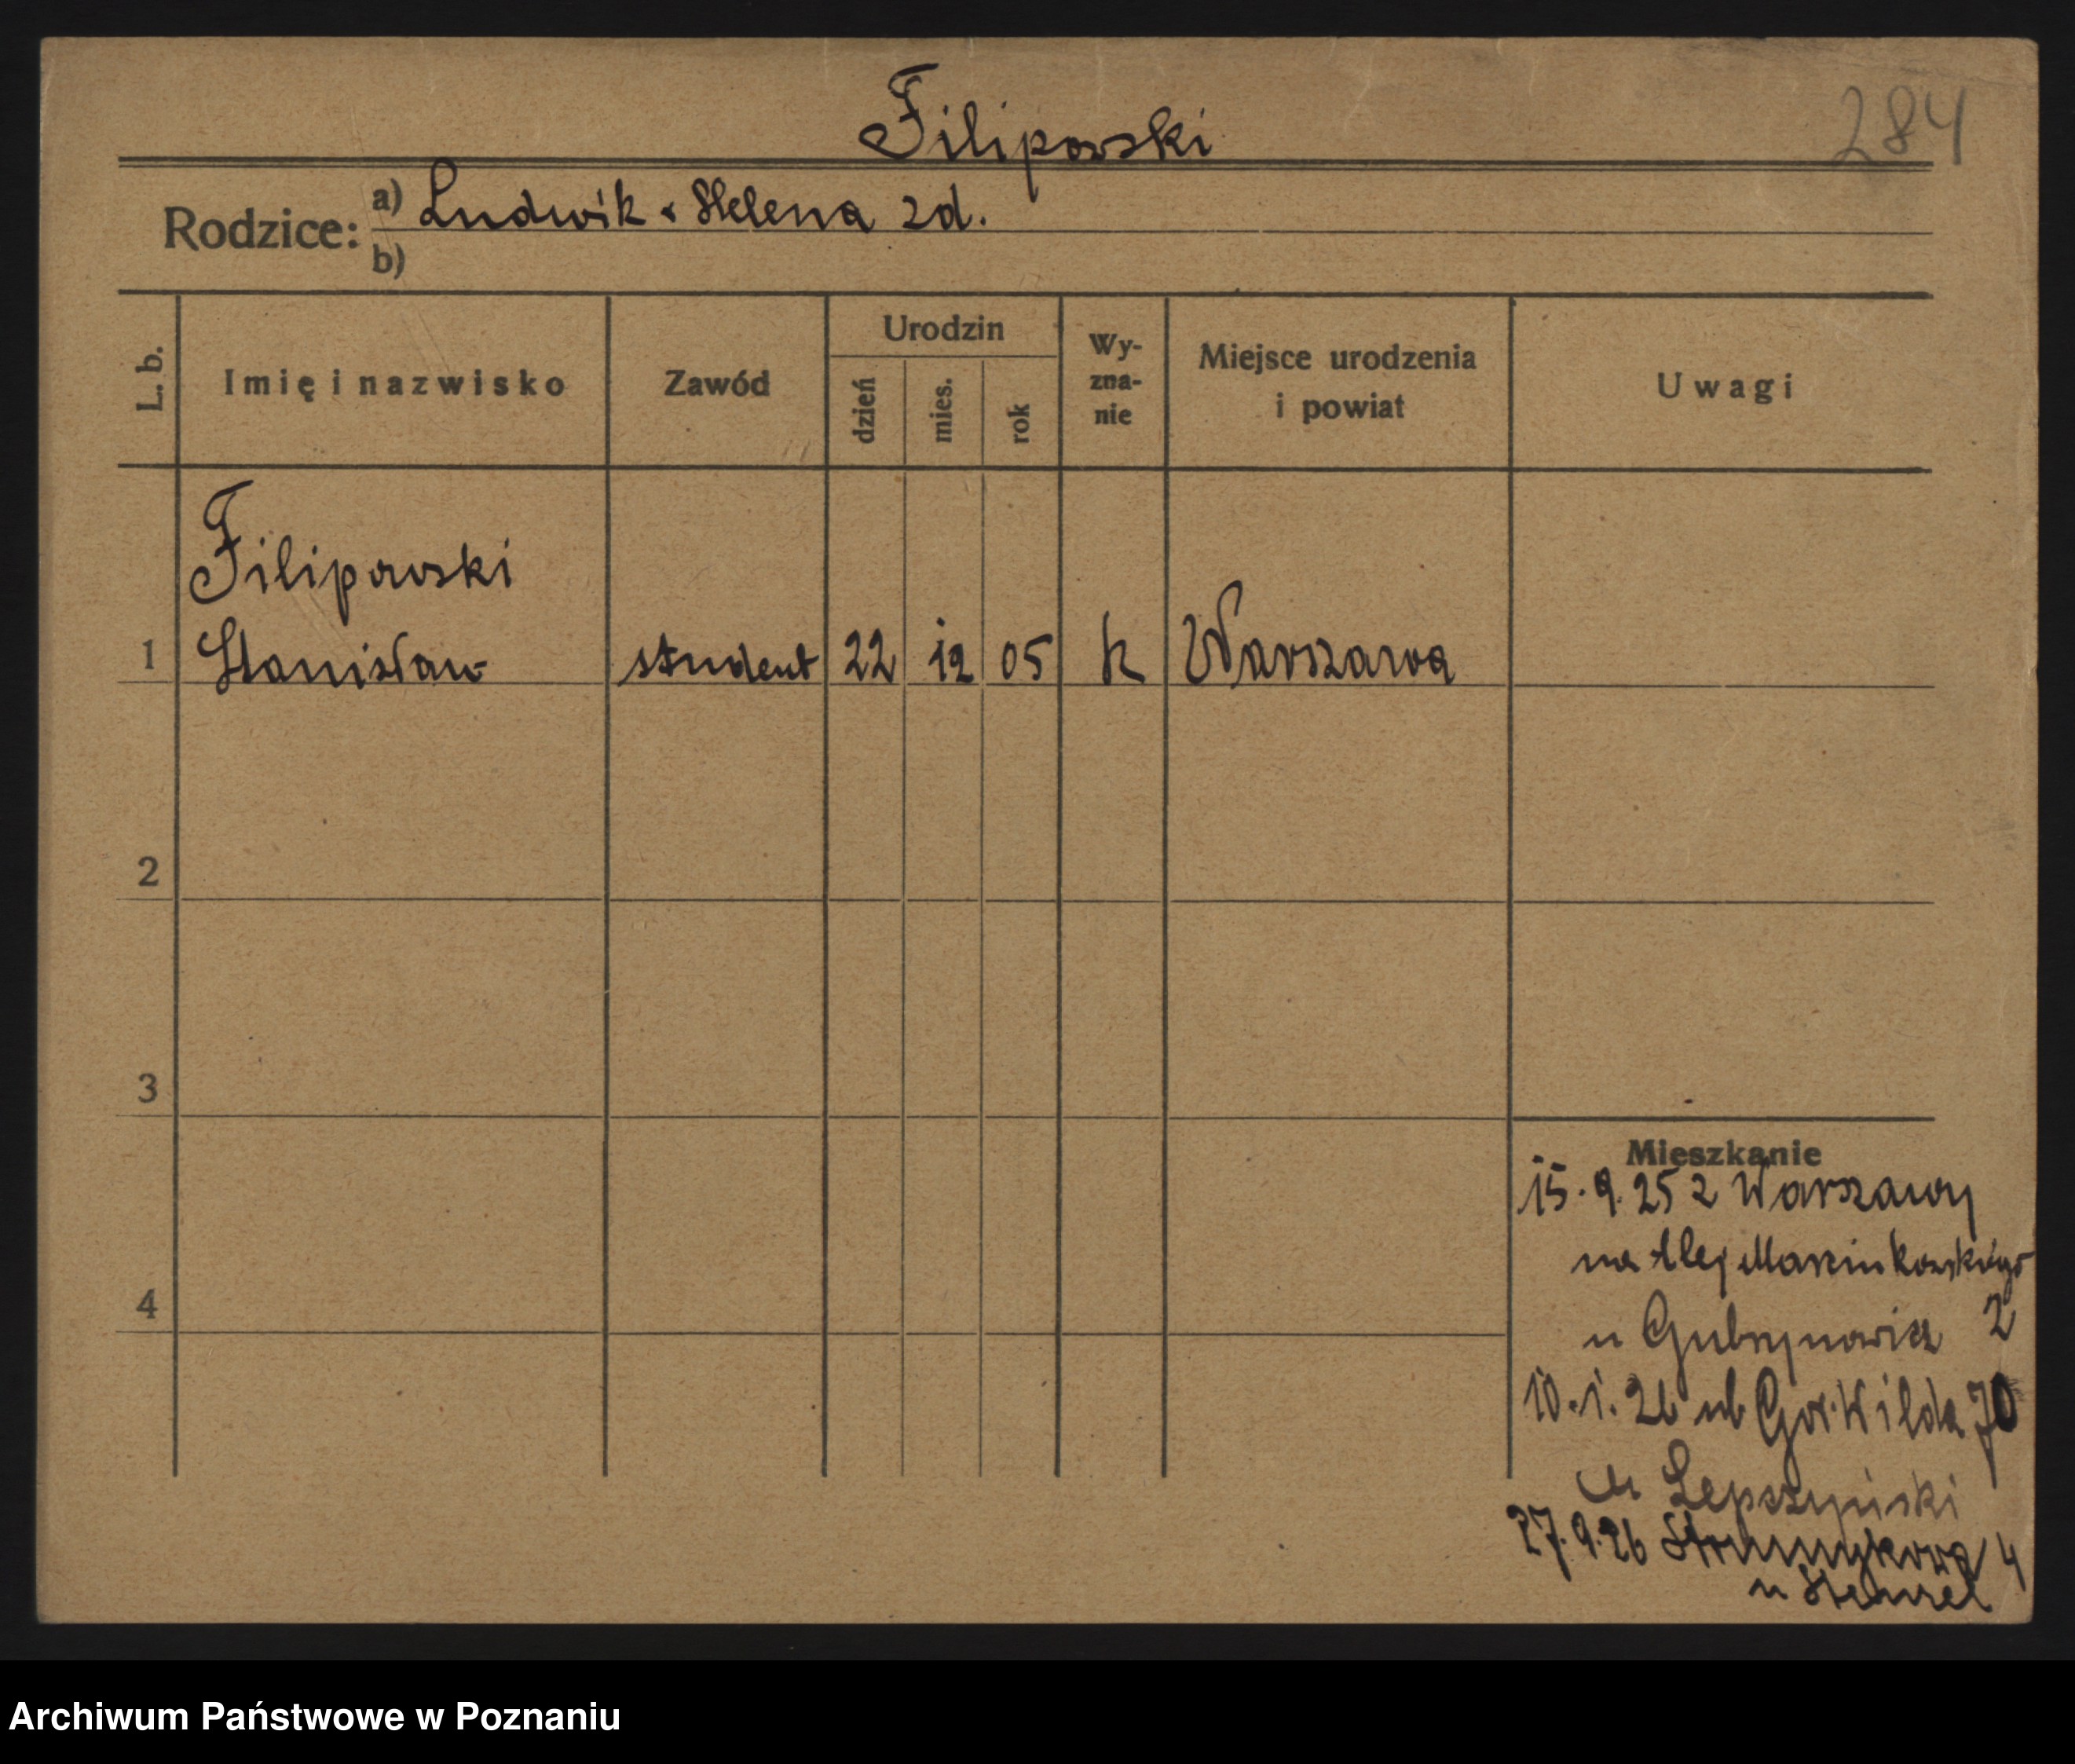 Filipowski
284
Rodzice: a) Ludwik & Helena zd.
b)
L. b. Imię i nazwisko Zawód Urodzin dzień mies. rok Wy-zna-nie Miejsce urodzenia i powiat Uwagi
Filipowski
1 Stanisław student 22 12 05 k Warszawa
2
3
4
Mieszkanie
15.9.25 z Warszawy
na Alej Marcinkowskiego
u Gubrynowicz 2
10.1.26 ul Gór. Wilda 70
u Lepszyński
27.9.26 Strumykowa 4
u
Archiwum Państwowe w Poznaniu